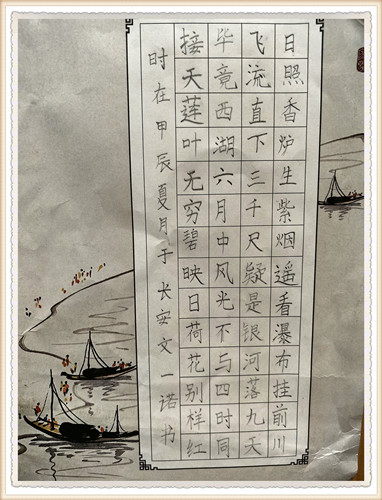 日照香炉生紫烟遥看瀑布挂前川
飞流直下三千尺疑是银河落九天
毕竟西湖六月中风光不与四时同
接天莲叶无穷碧映日荷花别样红
时在甲辰夏月于长安文一诺书